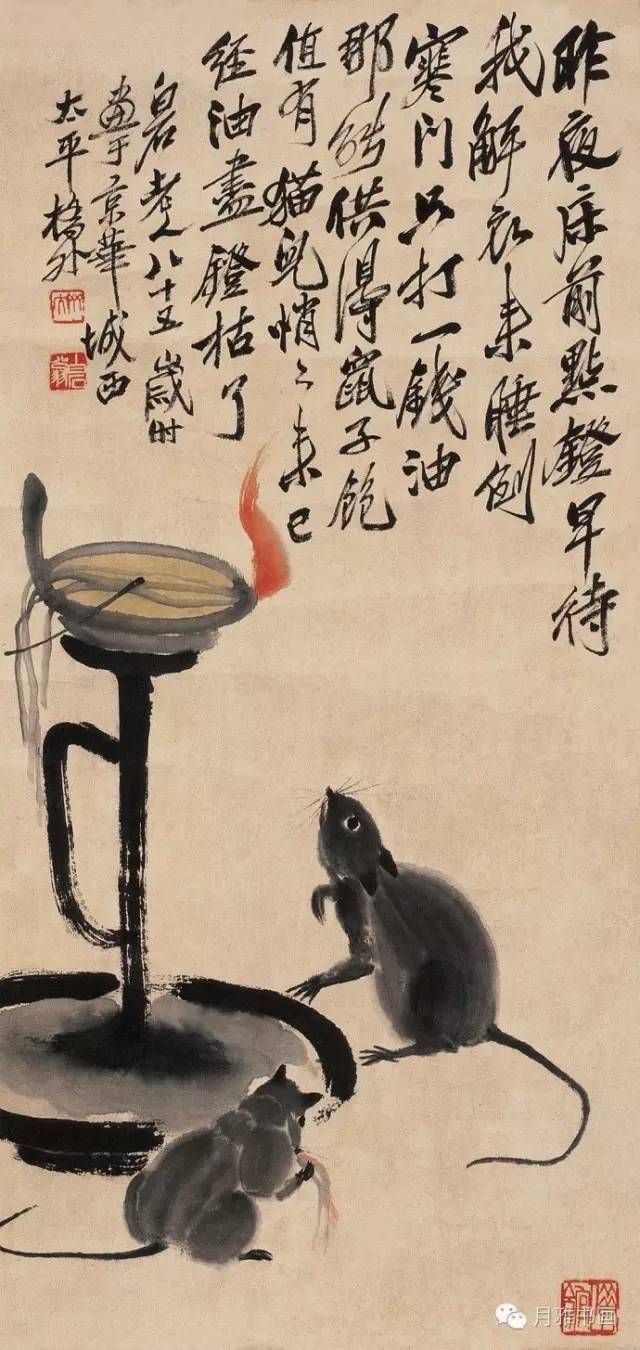 昨夜床前點鐙早待
我解衣来睡倒
寒门只打一錢油
那能供得鼠子飽
值有猫兒悄々来已
经油盡鐙枯了
白石老人八十五歲时
畫于京華城西
太平橋外
月雅书画